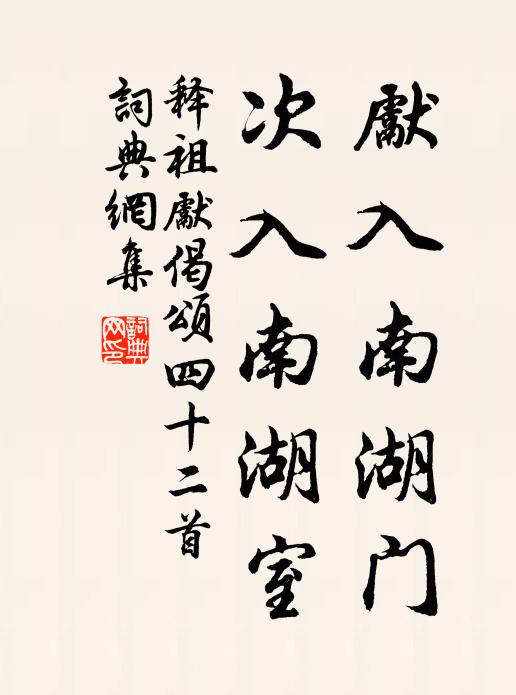 獻入南湖门
次入南湖室
释祖獻偈頌四十二首
詞典網集
詞典网印